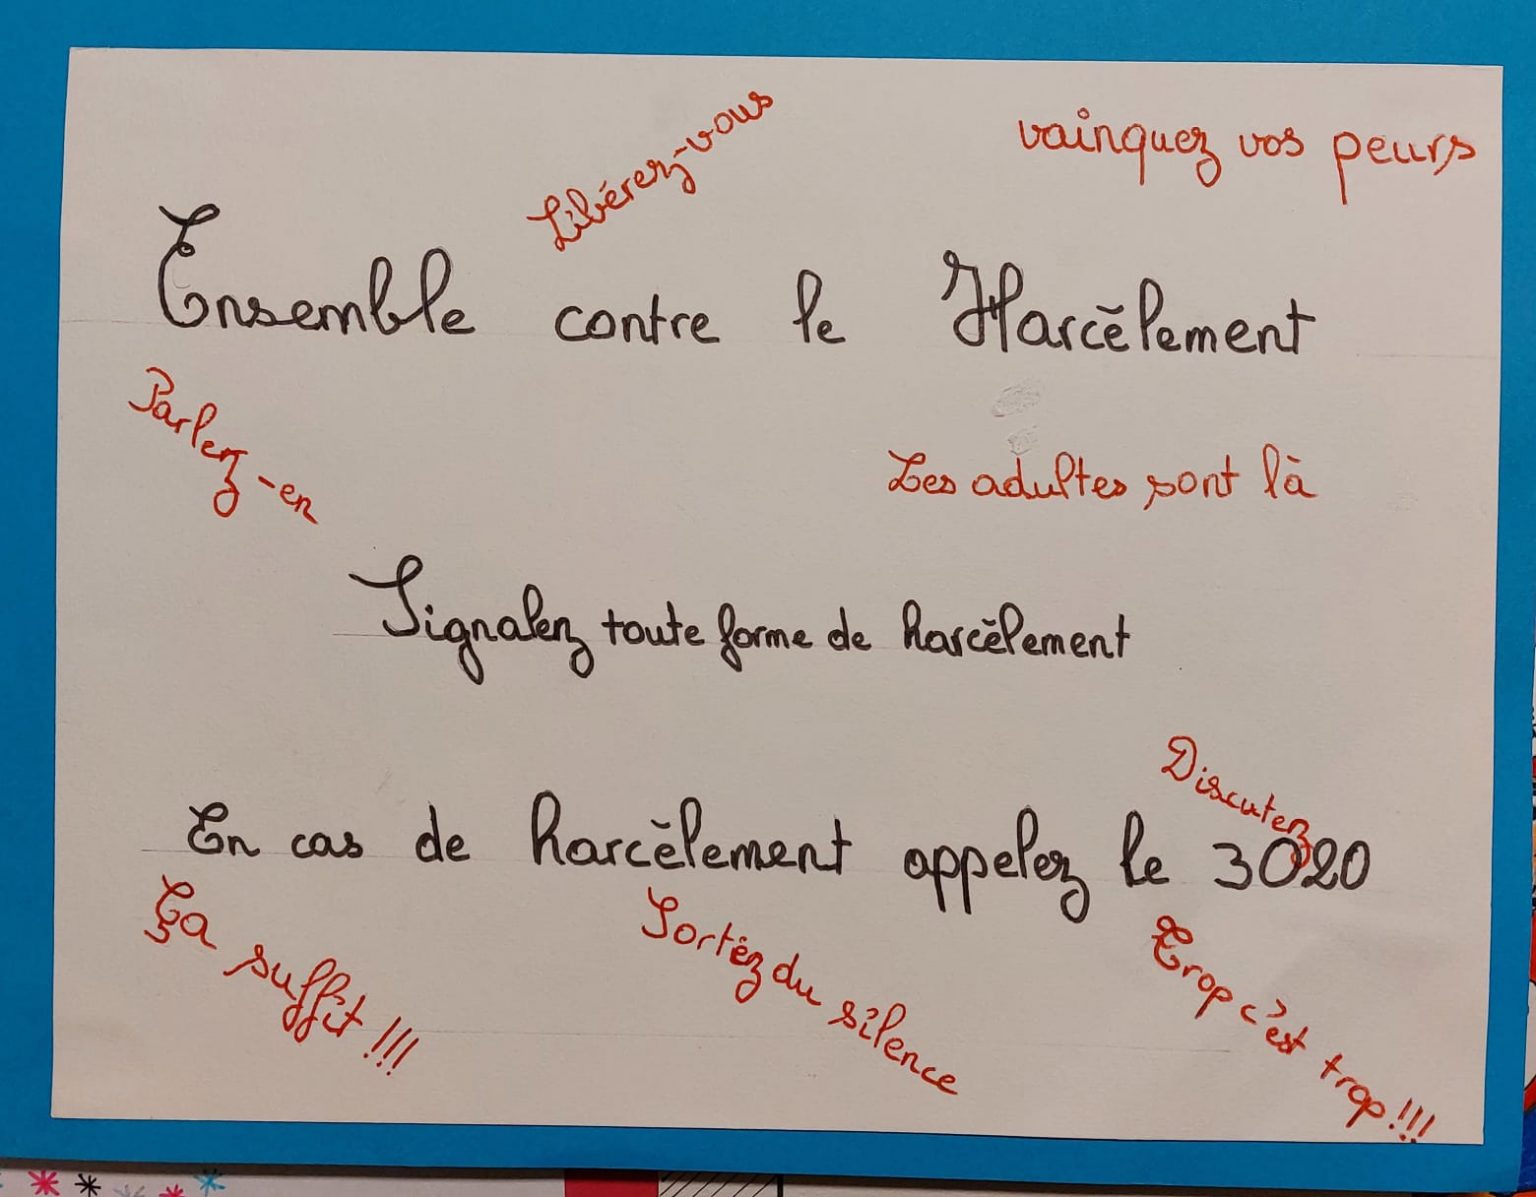 Libérez-vous
vainquez vos peurs
Ensemble contre le Harcèlement
Parlez-en
Les adultes sont là
Signalez toute forme de harcèlement
Discutez
En cas de harcèlement appelez le 3020
Ça suffit !!!
Sortez du silence
Trop c'est trop !!!